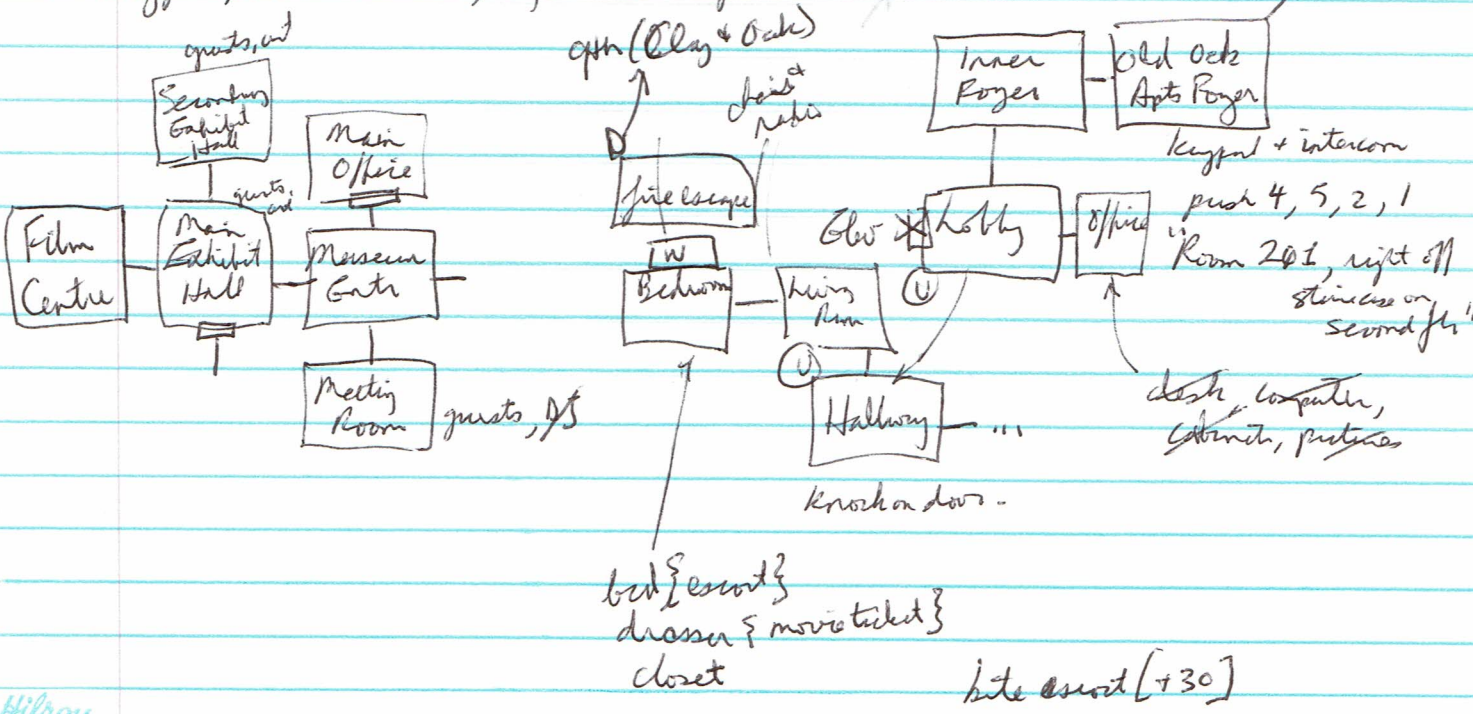 guests, art
Secondary
Exhibit
Hall
Main
Office
guests,
art
Film
Centre
Main
Exhibit
Hall
Museum
Entr
Meeting
Room
guests, DJ
(Clay & Oak)
chair &
radio
D
fire escape
W
Bedroom
Living
Rm
U
Hallway
...
knock on door.
bed {escort}
dresser {movie ticket}
closet
Inner
Foyer
Old Oak
Apts Foyer
keypad + intercom
push 4, 5, 2, 1
"Room 201, right off
staircase on
second flr"
Elev
Lobby
Office
U
desk, computer,
cabinet, pictures
bite escort [+30]
Hilroy